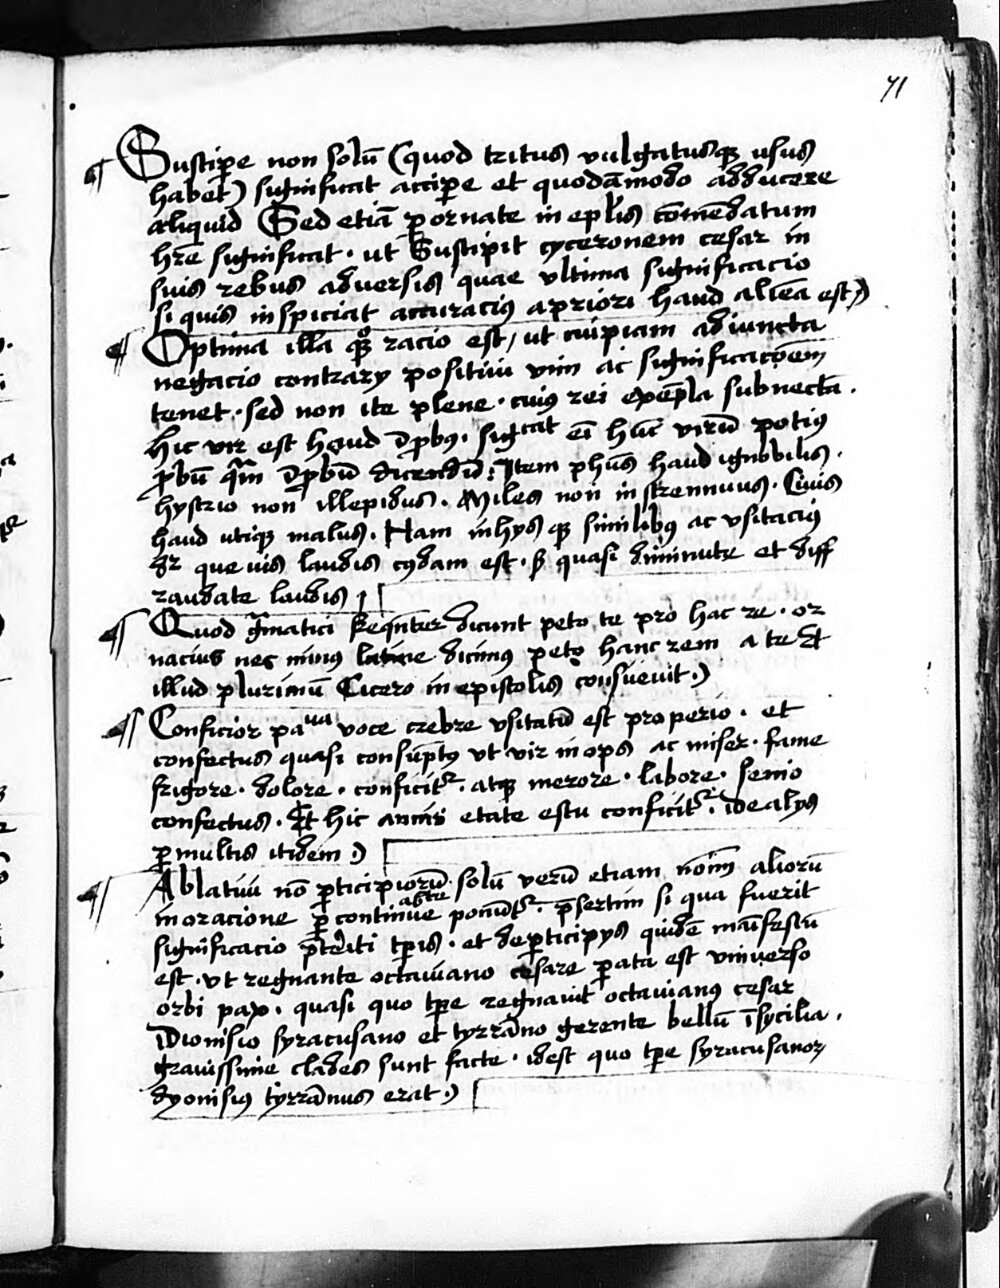 71
Suscipe non solū (quod tritus vulgatusq; usus
habet) significat accipe et quodāmodo adducere
aliquid Sed etiā perornate in eplis cōmēdatum
hr̄e significat · ut Suscipit cyceronem cesar in
suis rebus adversis quae ultima significacio
si quis inspiciat accuracius a priori haud aliēa est)
Optima illa quoq; racio est / ut cuipiam adiuncta
negacio contrarij positivi vim ac significacōem
tenet · sed non ita plene · cuius rei exēpla subnecta ·
hic vir est haud īprobus · sigcat eī hūc virū potius
probū q̄m īprobū dicendū · Item phūs haud ignobilis ·
hystrio non illepidus · Miles non in strennuus · Civis
haud utiq; malus · Nam in hys q; similibus ac usitacius
dr que vis laudis cydam est · s; quasi diminute et diff
raudate laudis
Quod gm̄atici freqnter dicunt peto te pro hac re · or
nacius nec minus latine dicimus peto hanc rem a te Et
illud plurimū Cicero in epistolis consuevit)
Conficior paua voce crebre usitatū est pro perio · et
confectus quasi consūptus ut vir inops ac miser · fame
frigore · dolore · conficitr · atq; merore · labore · senio
confectus · Et hic annis etate estu conficitr · ide alys
permultis itidem)
Ablativi nō participiorū solū verū etiam noīm aliorū
in oracione per continue abte ponūtr · p̄sertim si qua fuerit
significacio p̄teriti tpis · et de participys quidē maīfestū
est · ut regnante octaviano cesare parata est universo
orbi pax · quasi quo tpe regnavit octavianus cesar
Dionisio syracusano et tyrrāno gerente bellū ī sycilia ·
gravissime clades sunt facte · idest quo tpe syracusanor
dyonisius tyrrānus erat)